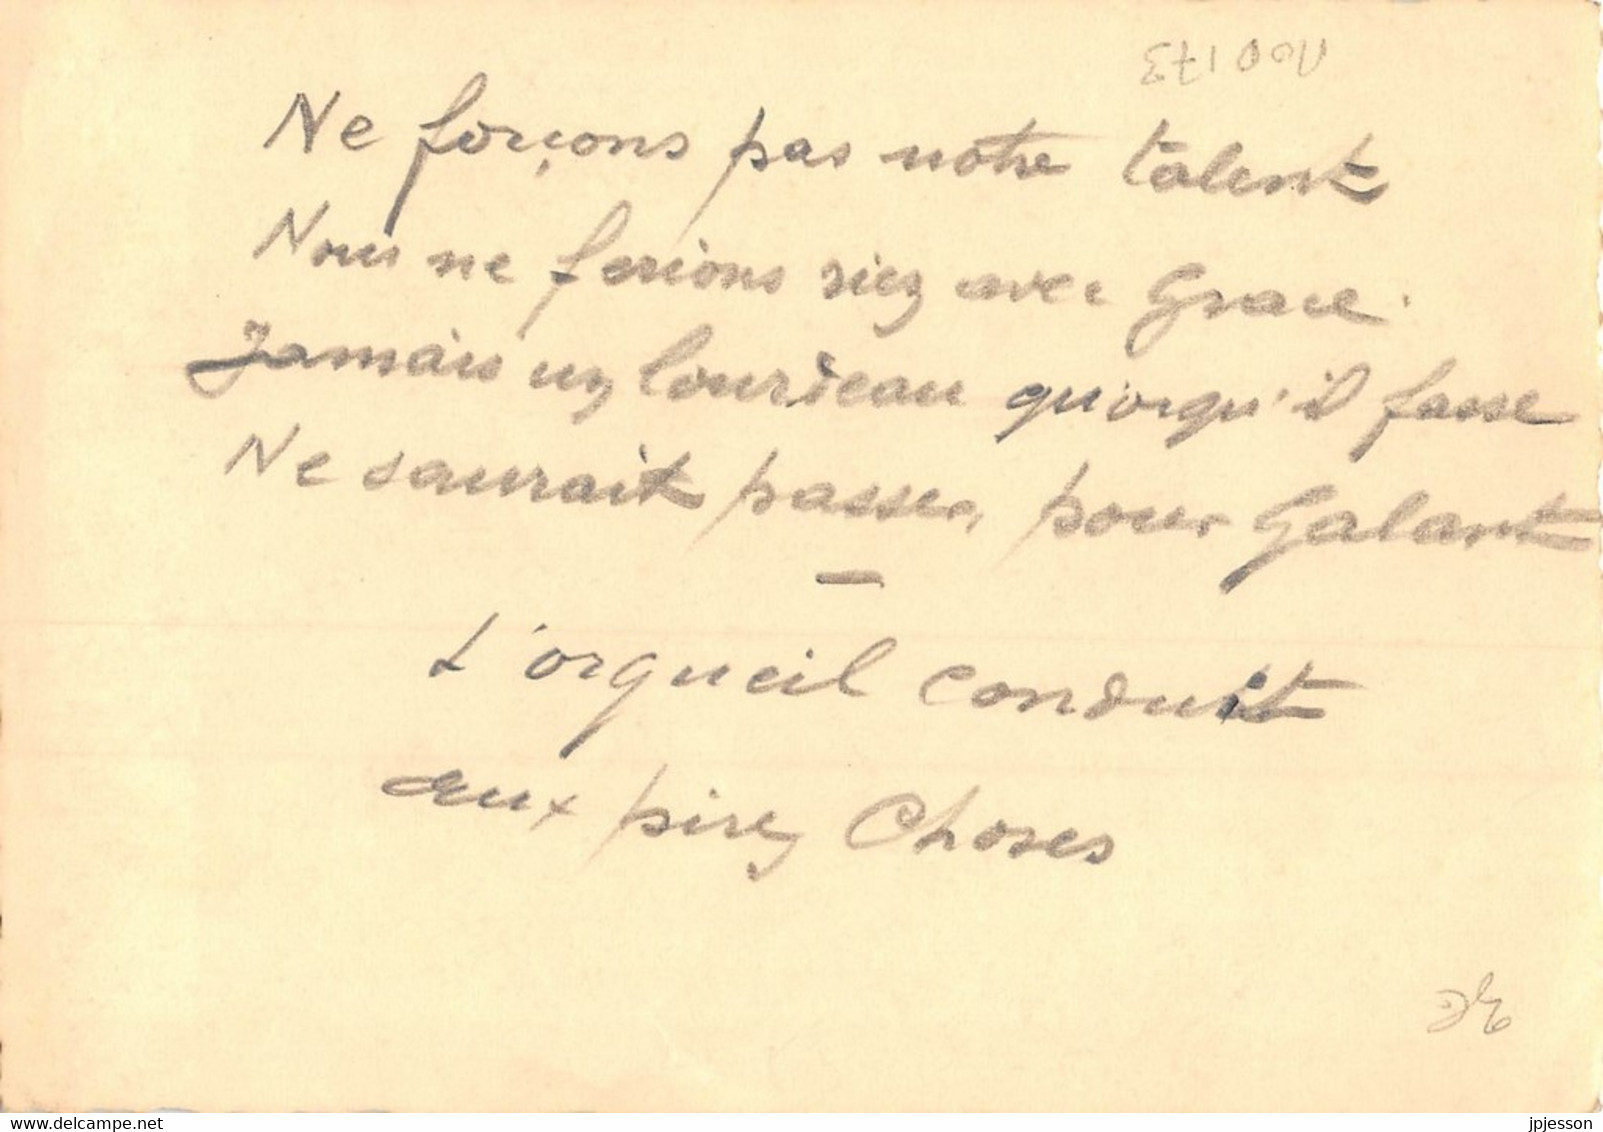 Ne forçons pas notre talent
Nous ne ferions rien avec Grace.
Jamais un lourdeau quoiqu'il fasse
Ne saurait passer pour Galant
—
L'orgueil conduit
aux pires Choses
www.delcampe.net
jpjesson